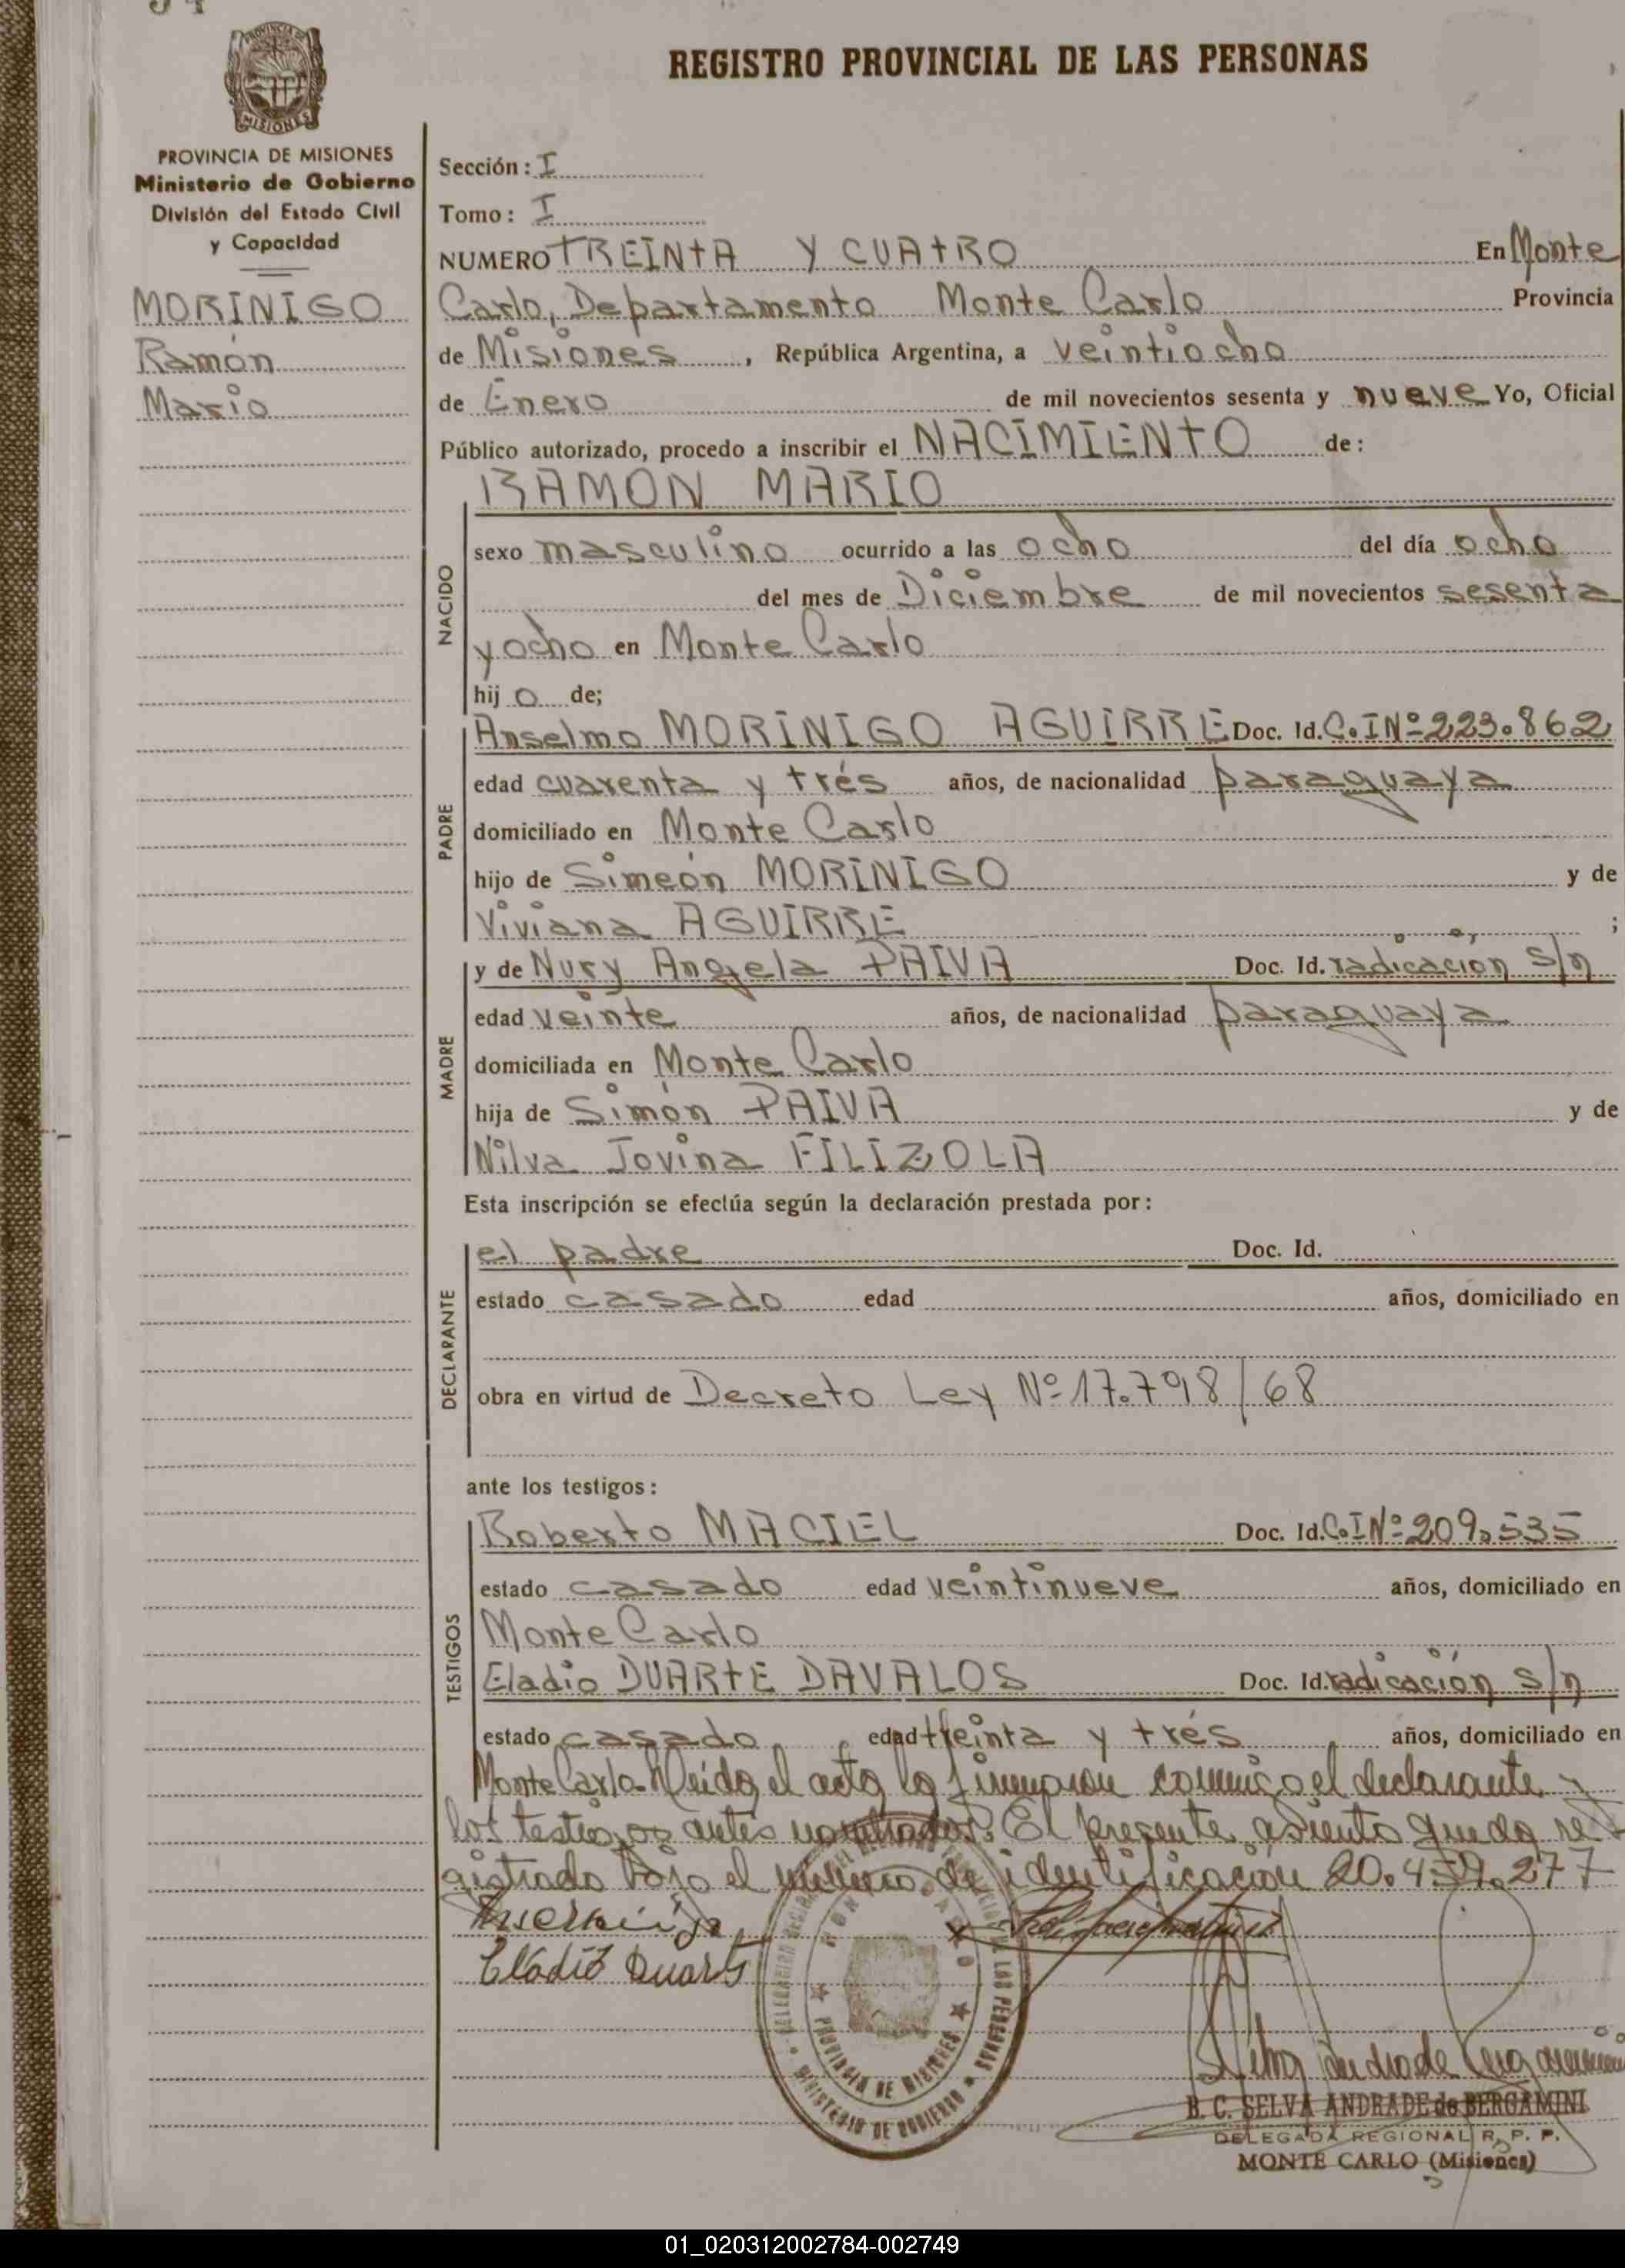 PROVINCIA DE MISIONES
PROVINCIA DE MISIONES
Ministerio de Gobierno
División del Estado Civil
y Capacidad
MORINIGO
Ramón
Mario
REGISTRO PROVINCIAL DE LAS PERSONAS
Sección: I
Tomo: I
NUMERO TREINTA Y CUATRO En Monte
Carlo, Departamento Monte Carlo Provincia
de Misiones, República Argentina, a veintiocho
de Enero de mil novecientos sesenta y nueve Yo, Oficial
Público autorizado, procedo a inscribir el NACIMIENTO de:
RAMON MARIO
NACIDO
sexo masculino ocurrido a las ocho del día ocho
del mes de Diciembre de mil novecientos sesenta
y ocho en Monte Carlo
hijo de;
Anselmo MORINIGO AGUIRRE Doc. Id. C.I Nº 223.862
PADRE
edad cuarenta y trés años, de nacionalidad paraguaya
domiciliado en Monte Carlo
hijo de Simeón MORINIGO y de
Viviana AGUIRRE ;
y de Nury Angela PAIVA Doc. Id. radicación s/n
MADRE
edad veinte años, de nacionalidad paraguaya
domiciliada en Monte Carlo
hija de Simón PAIVA y de
Nilva Jovina FILIZOLA
Esta inscripción se efectúa según la declaración prestada por:
DECLARANTE
el padre Doc. Id.
estado casado edad años, domiciliado en
obra en virtud de Decreto Ley Nº 17.798/68
ante los testigos:
TESTIGOS
Roberto MACIEL Doc. Id. C.I Nº 209.535
estado casado edad veintinueve años, domiciliado en
Monte Carlo
Eladio DUARTE DAVALOS Doc. Id. radicación s/n
estado casado edad treinta y trés años, domiciliado en
Monte Carlo. Leída el acta la firmaron conmigo el declarante y
los testigos antes nombrados. El presente asiento queda re
gistrado bajo el número de identificación 20.459.277
Eladio Duarte
PROVINCIA DE MISIONES
MINISTERIO DE GOBIERNO
LAS PERSONAS
B. C. SELVA ANDRADE de BERGAMINI
DELEGADA REGIONAL R. P. P.
MONTE CARLO (Misiones)
01_020312002784-002749